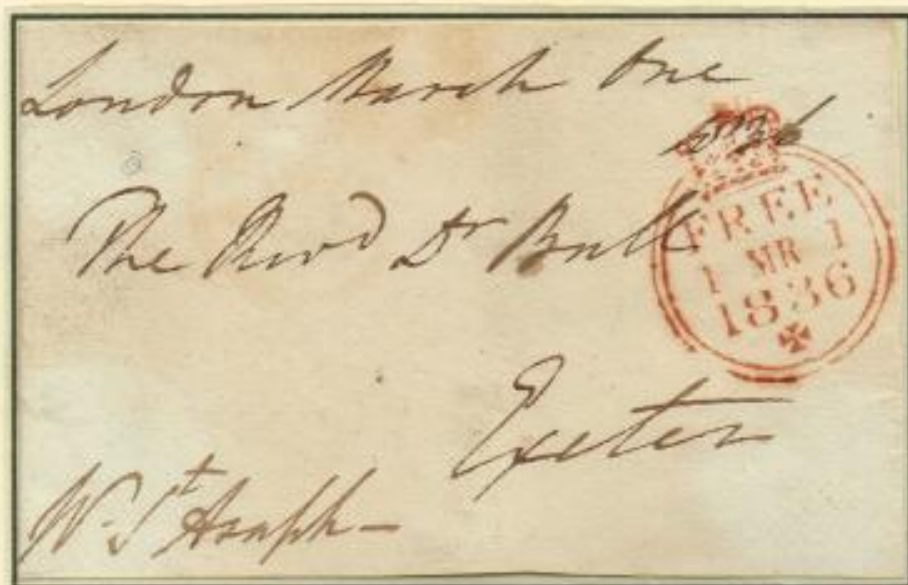 London March One
1836
The Revd Dr Bull
FREE
1 MR 1
1836
Exeter
W. St Asaph—